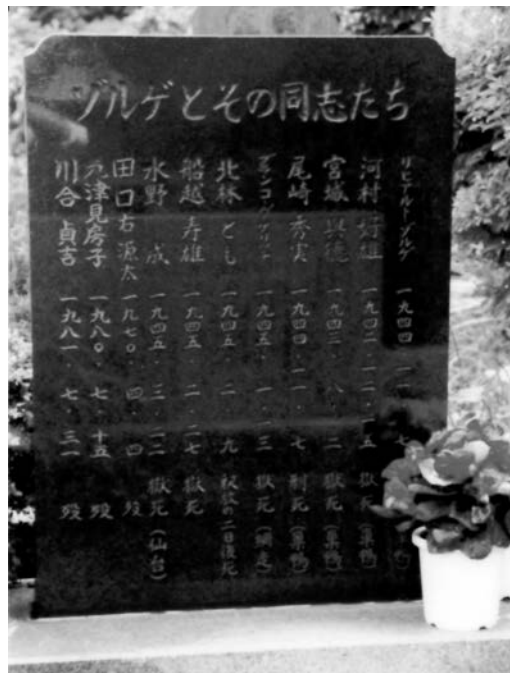 ゾルゲとその同志たち
リヒアルト・ゾルゲ 一九四四・一一・七 鴨)
河村好雄 一九四二・一二・一五 獄死(巣鴨)
宮城與徳 一九四三・八・二 獄死(巣鴨)
尾崎秀実 一九四四・一一・七 刑死(巣鴨)
ブランコ・ヴケリッチ 一九四五・一・一三 獄死(網走)
北林とも 一九四五・二・九 釈放の二日後死
船越寿雄 一九四五・二・二七 獄死
水野成 一九四五・三・二二 獄死(仙台)
田口右源太 一九七〇・四・四 歿
九津見房子 一九八〇・七・十五 歿
川合貞吉 一九八一・七・三一 歿